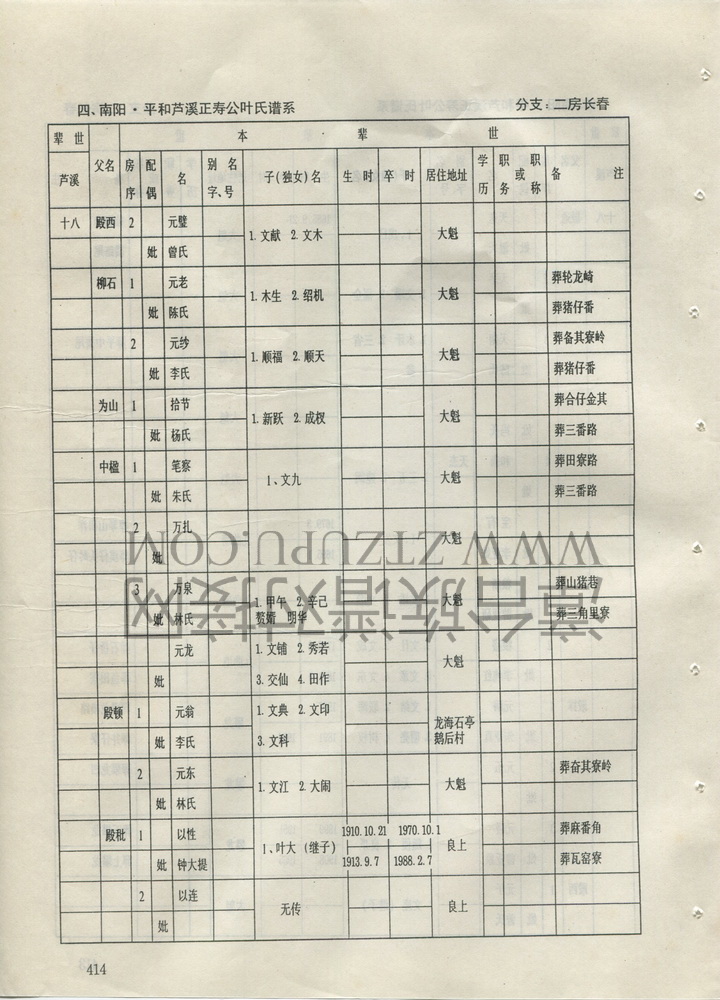 四、南阳·平和芦溪正寿公叶氏谱系 分支：二房长春
辈世 本辈世
芦溪 父名 房序 配偶 名 别名字、号 子(独女)名 生时 卒时 居住地址 学历 职或职务称 备注
十八 殿西 2 元璧 1.文献 2.文木 大魁
妣 曾氏
柳石 1 元老 1.木生 2.绍机 大魁 葬轮龙崎
妣 陈氏 葬猪仔番
2 元纱 1.顺福 2.顺天 大魁 葬备其寮岭
妣 李氏 葬猪仔番
为山 1 拾节 1.新跃 2.成杈 大魁 葬合仔金其
妣 杨氏 葬三番路
中楹 1 笔察 1、文九 大魁 葬田寮路
妣 朱氏 葬三番路
2 万扎 大魁
妣
3 万泉 1.甲午 2.辛己 大魁 葬山猪巷
妣 林氏 赘婿 明华 葬三角里寮
元龙 1.文铺 2.秀若 大魁
妣 3.交仙 4.田作
殿顿 1 元翁 1.文典 2.文印 龙海石亭
妣 李氏 3.文科 鹅后村
2 元东 1.文江 2.大闹 大魁 葬奋其寮岭
妣 林氏
殿秕 1 以性 1、叶大（继子） 1910.10.21 1970.10.1 良上 葬麻番角
妣 钟大提 1913.9.7 1988.2.7 葬瓦窑寮
2 以连 无传 良上
妣
414
漳台族谱对接网
WWW.ZTZUPU.COM